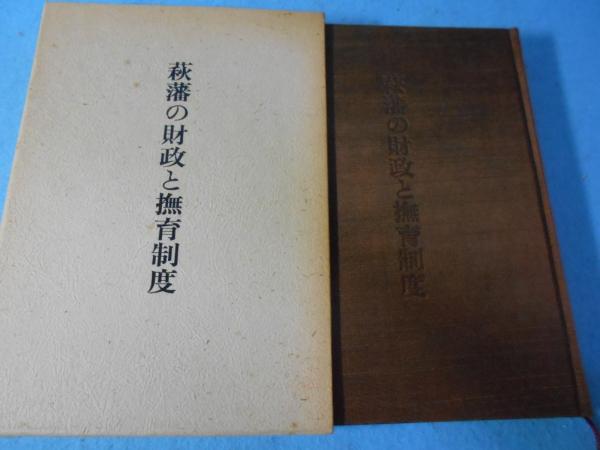 萩藩の財政と撫育制度
萩藩の財政と撫育制度